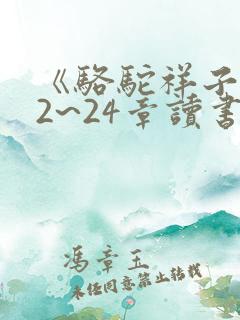 《駱駝祥子
2~24章讀書
馮章玉
未经同意禁止转载